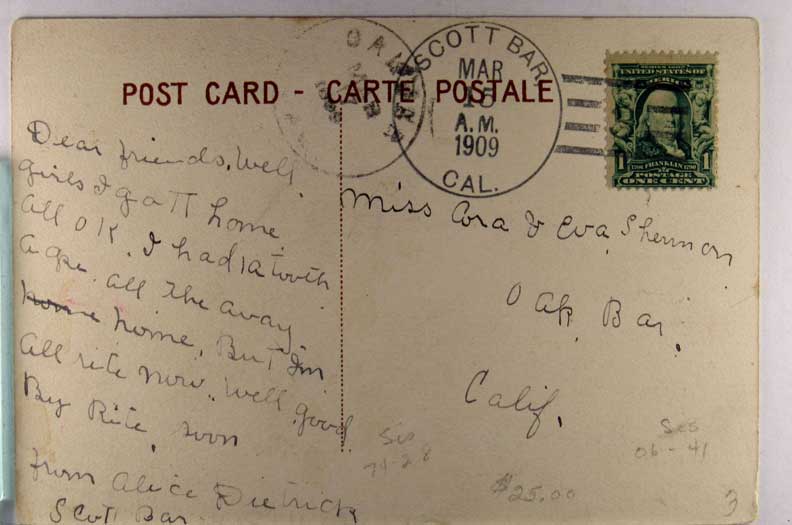 POST CARD - CARTE POSTALE
SCOTT BAR
MAR
15
A.M.
1909
CAL.
OAK BAR
SERIES 1902
UNITED STATES OF
AMERICA
1 1
FRANKLIN
POSTAGE
ONE CENT
Dear friends, Well
girls I gott home
all OK. I had a tooth
ake all the away
home home, But I'm
all rite now. Well good
By Rite soon
from Alice Dietrick
Scott Bar
Miss Cora & Eva Sherman
Oak Bar,
Calif.
Scs
74-28
Scs
06-41
$25.00
3